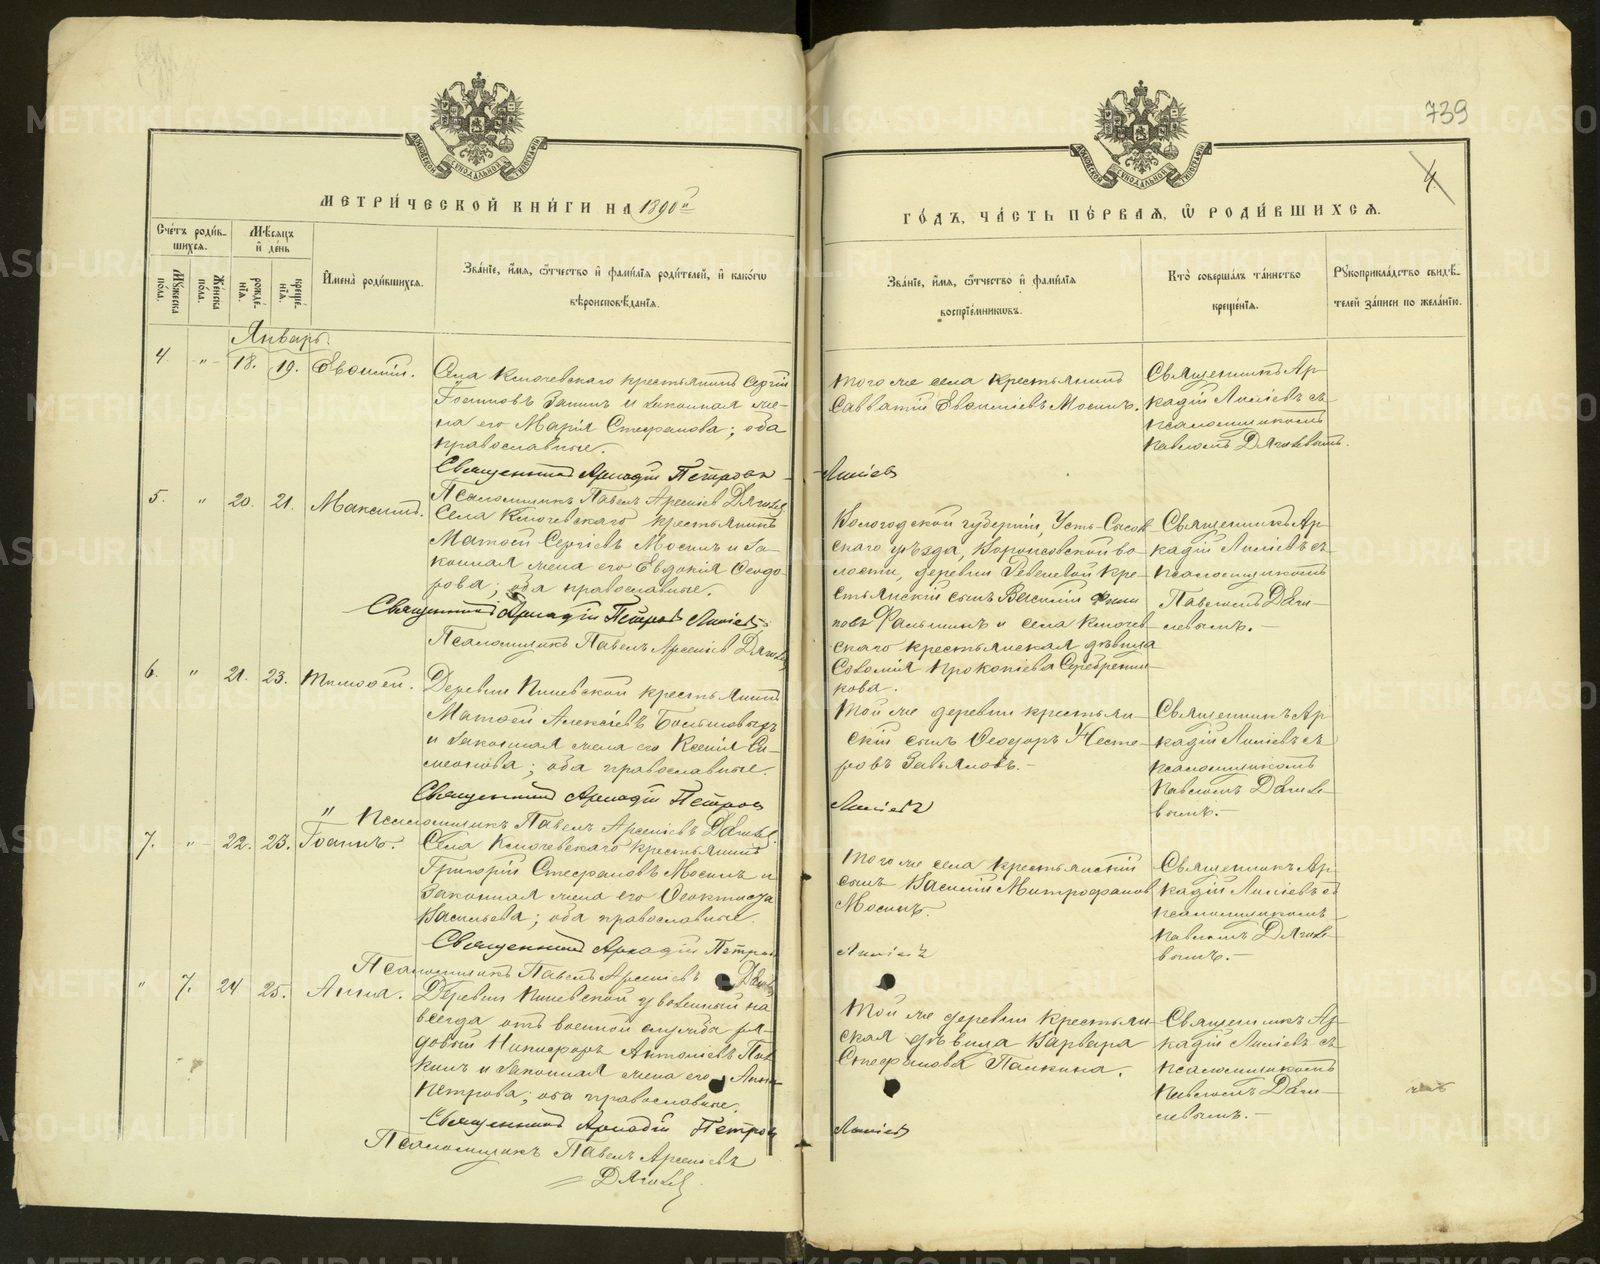 739
4.
МЕТРИ́ЧЕСКОЙ КНИ́ГИ НА 1890й
ГО́ДЪ, ЧА́СТЬ ПЕ́РВАЯ, Ѽ РОДИ́ВШИХСЯ.
Сче́тъ роди́в-
шихся.
Му́жеска по́ла.
Же́нска по́ла.
Мѣ́сяцъ и де́нь
рожде́нія.
креще́нія.
Имена̀ роди́вшихся.
Зва́ніе, и́мя, о́тчество и фами́лія роди́телей, и како́гѡ
вѣроисповѣ́данія.
Зва́ніе, и́мя, о́тчество и фами́лія
воспріе́мникѡвъ.
Кто̀ соверша́лъ та́инство
креще́нія.
Рꙋкоприкла́дство свидѣ́-
телей за́писи по жела́нію.
Январь.
4. " 18. 19. Евѳимій.
Села Ключевскаго крестьянинъ Сергій
и законная же-
на его Марія Стефанова; оба
православные.
Священникъ Аркадій Петровъ
Псаломщикъ Павелъ Арсеніевъ Дягилев
Того же села крестьянинъ
Савватій Евѳиміевъ Мосинъ.
Священникъ Ар-
кадій съ
псаломщикомъ
Павломъ Дягилевымъ.
5. " 20. 21. Максимъ.
Села Ключевскаго крестьянинъ
Матѳей Сергіевъ Мосинъ и за-
конная жена его Евдокія Ѳеодо-
рова; оба православные.
Священникъ Аркадій Петровъ
Псаломщикъ Павелъ Арсеніевъ Дягилев
Вологодской губерніи, Усть-Сысоль-
скаго уѣзда,
волости, деревни кре-
стьянскій сынъ Василій
и села Ключев-
скаго крестьянская дѣвица
Соломія Прокопіева Серебрени-
кова.
Священникъ Ар-
кадій съ
псаломщикомъ
Павломъ Дяги-
левымъ.
6. " 21. 23. Тимоѳей.
Деревни крестьянинъ
Матѳей Алексіевъ
и законная жена его Ксенія Си-
меонова; оба православные.
Священникъ Аркадій Петров
Псаломщикъ Павелъ Арсеніевъ Дягилев
Той же деревни крестьян-
скій сынъ Ѳеодоръ Несте-
ровъ Завьяловъ.
Священникъ Ар-
кадій съ
псаломщикомъ
Павломъ Дягиле-
вымъ.
7. " 22. 23. Іоаннъ.
Села Ключевскаго крестьянинъ
Григорій Стефановъ Мосинъ и
законная жена его Ѳеоктиста
Васильева; оба православные.
Священникъ Аркадій Петров
Псаломщикъ Павелъ Арсеніевъ Дягилев
Того же села крестьянскій
сынъ Василій Митрофанов
Мосинъ.
Священникъ Ар-
кадій съ
псаломщикомъ
Павломъ Дягиле-
вымъ.
" 7. 24 25. Анна.
Деревни уволенный на-
всегда отъ военной службы ря-
довый Никифоръ Антоніевъ Пал-
кинъ и законная жена его Анна
Петрова; оба православные.
Священникъ Аркадій Петров
Псаломщикъ Павелъ Арсеніевъ
Дягилев
Той же деревни крестьян-
ская дѣвица Варвара
Стефанова Палкина.
Священникъ Ар-
кадій съ
псаломщикомъ
Павломъ Дяги-
левымъ.
METRIKI.GASO-URAL.RU